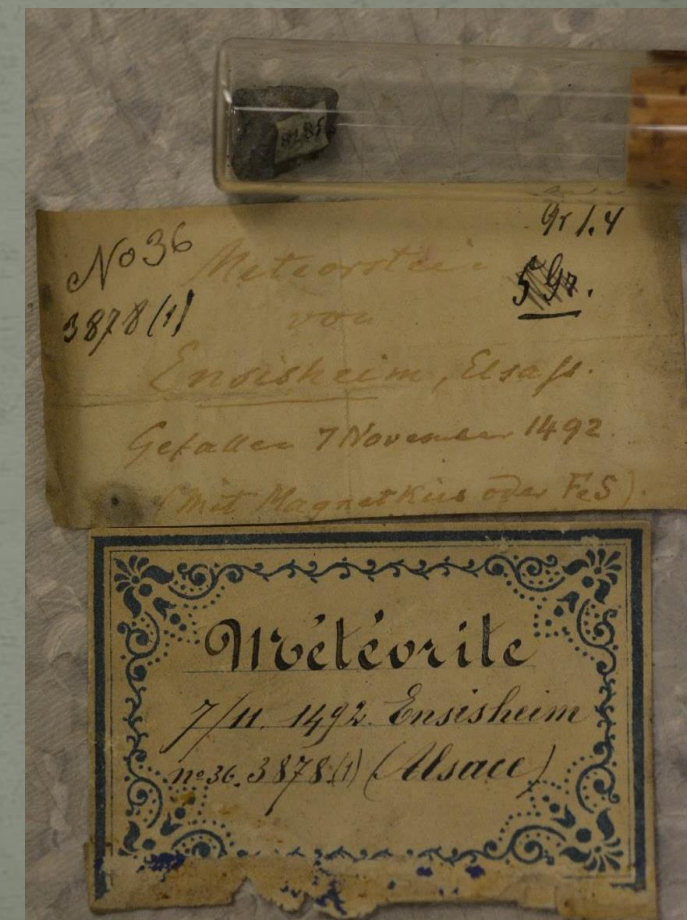 No 36
3878 (1)
Gr 1.4
5 Gr.
Meteorstein
von
Ensisheim, Elsaß.
Gefallen 7 November 1492
(Mit MagnetKies oder FeS).
Météorite
7/11. 1492. Ensisheim
no 36. 3878 (1) (Alsace)